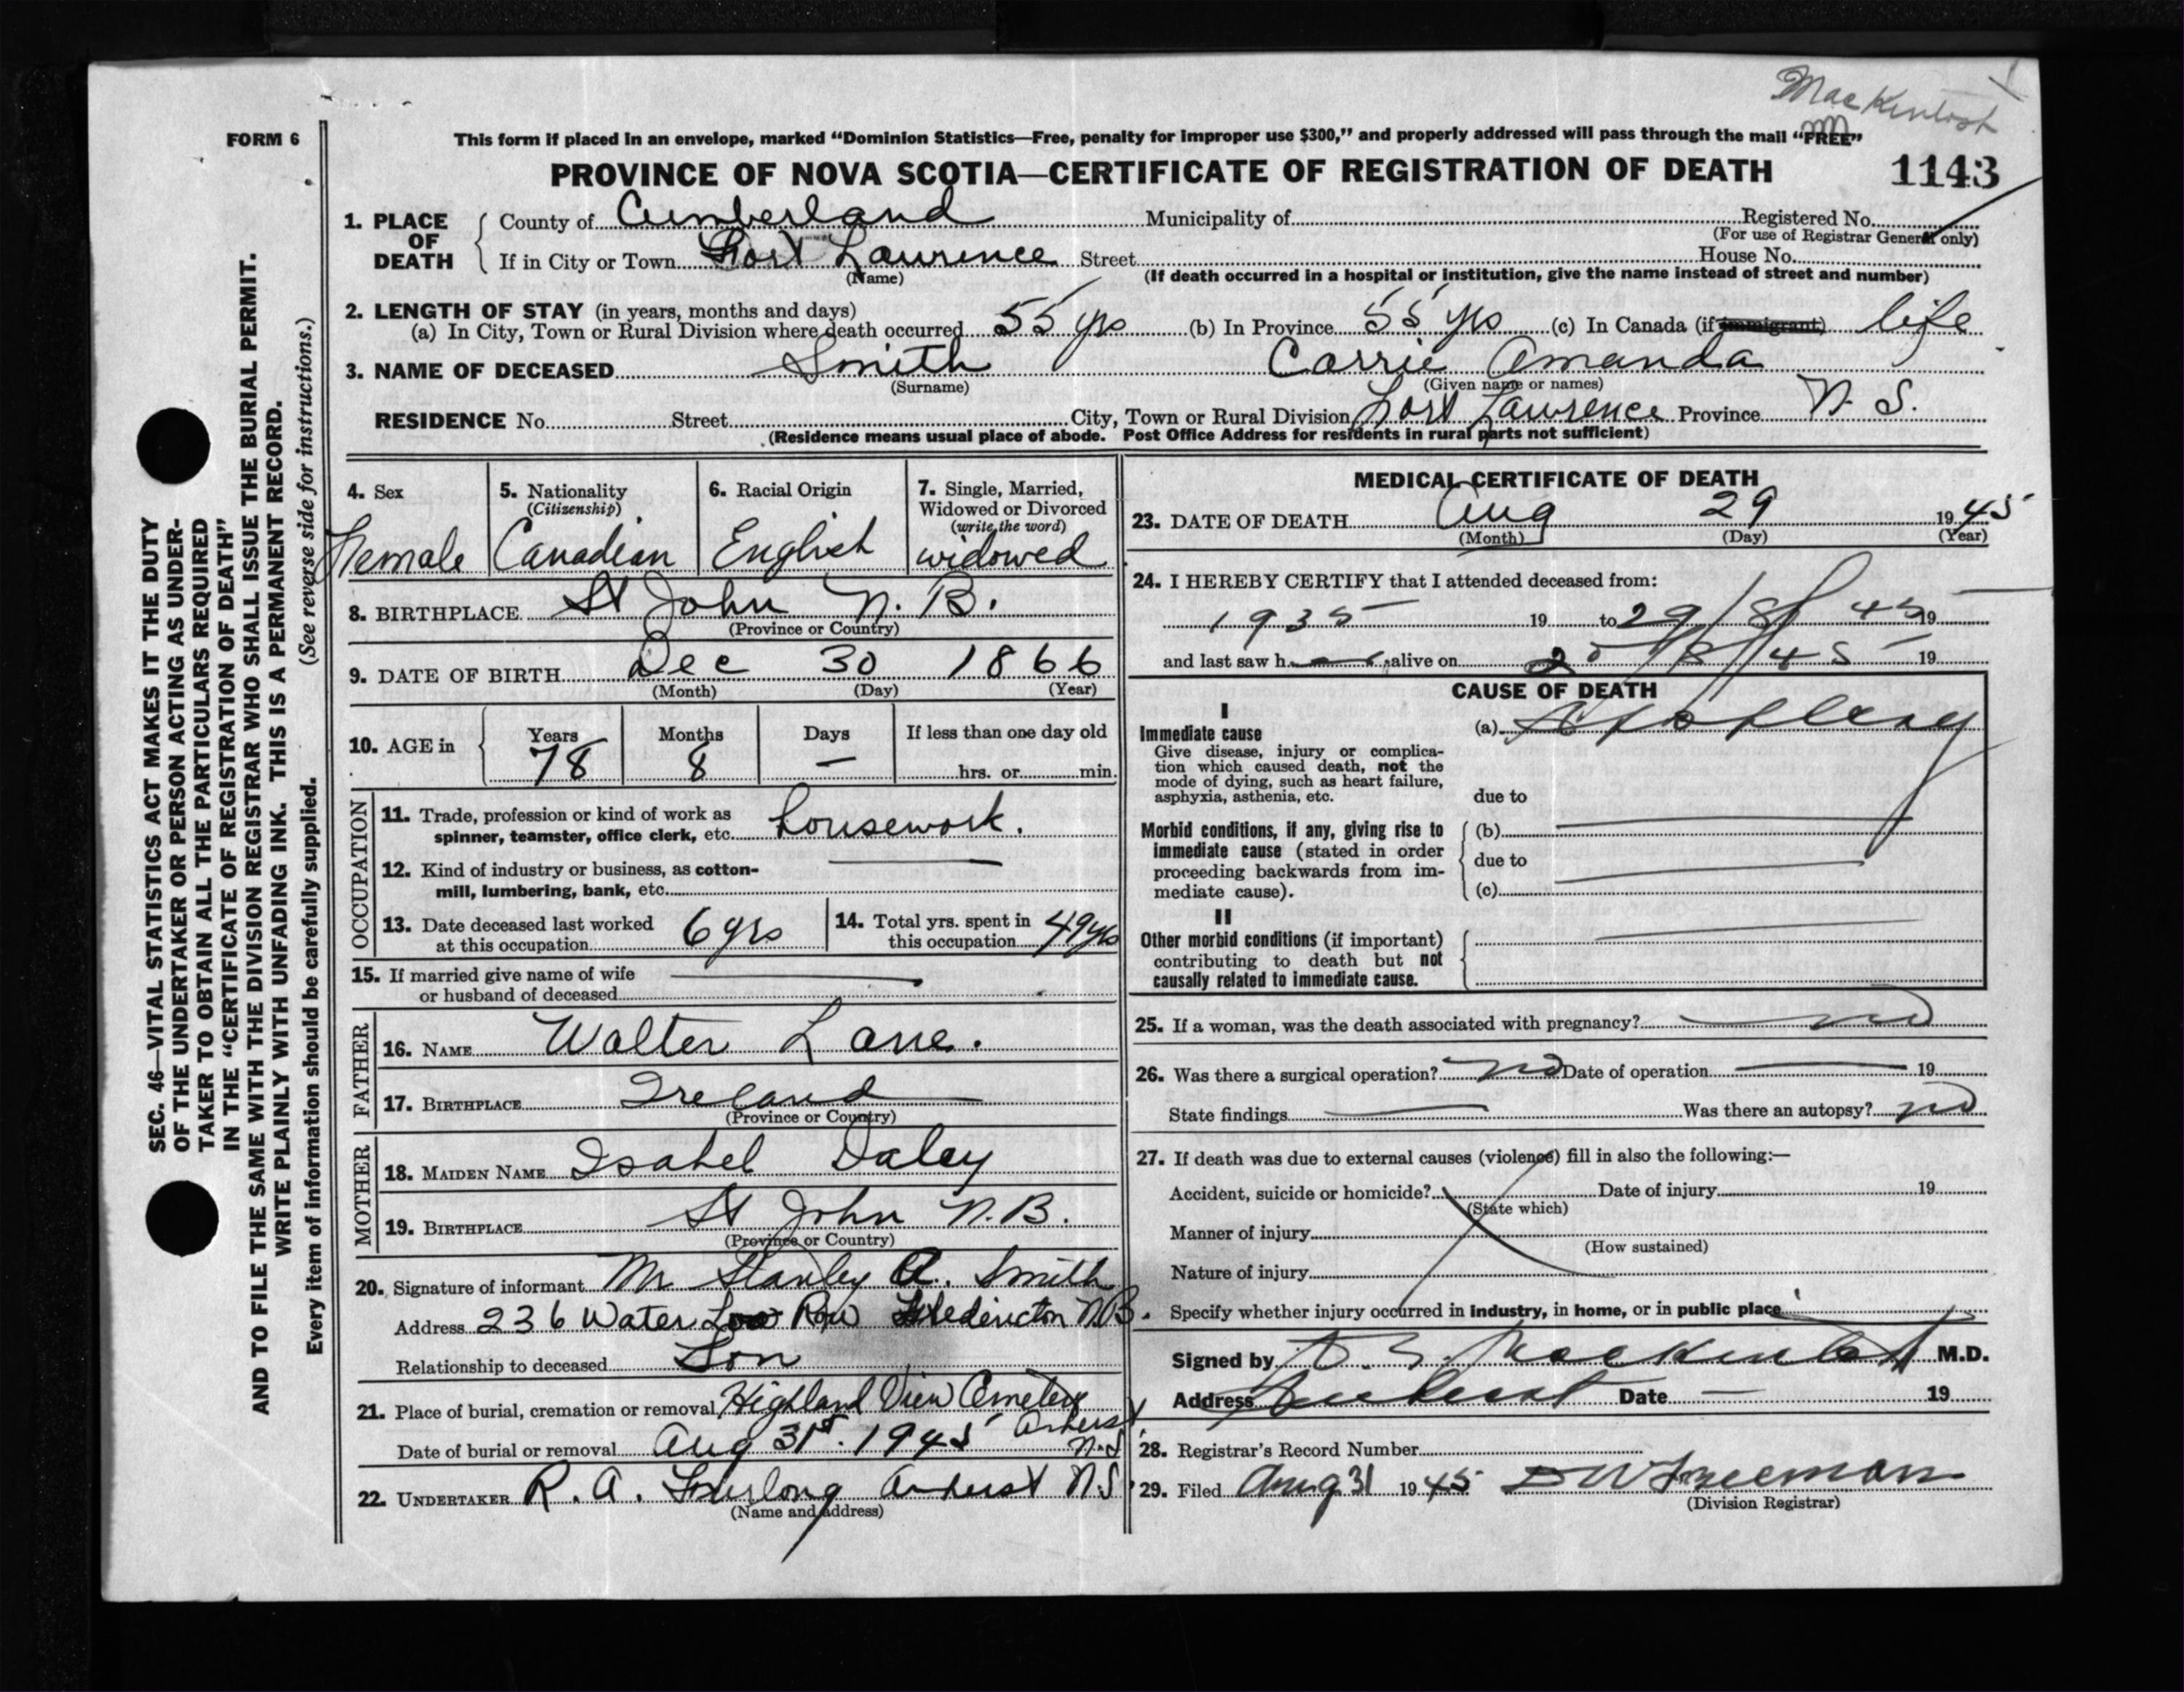 MacKintosh
FORM 6
This form if placed in an envelope, marked “Dominion Statistics—Free, penalty for improper use $300,” and properly addressed will pass through the mail “FREE”
PROVINCE OF NOVA SCOTIA—CERTIFICATE OF REGISTRATION OF DEATH 1143
1. PLACE OF DEATH County of Cumberland Municipality of Registered No.
(For use of Registrar General only)
If in City or Town Fort Lawrence Street House No.
(Name) (If death occurred in a hospital or institution, give the name instead of street and number)
2. LENGTH OF STAY (in years, months and days)
(a) In City, Town or Rural Division where death occurred 55 yrs (b) In Province 55 yrs (c) In Canada (if immigrant) life
3. NAME OF DECEASED Smith Carrie Amanda
(Surname) (Given name or names)
RESIDENCE No. Street City, Town or Rural Division Fort Lawrence Province N. S.
(Residence means usual place of abode. Post Office Address for residents in rural parts not sufficient)
4. Sex 5. Nationality (Citizenship) 6. Racial Origin 7. Single, Married, Widowed or Divorced (write the word)
Female Canadian English widowed
8. BIRTHPLACE St John N. B.
(Province or Country)
9. DATE OF BIRTH Dec 30 1866
(Month) (Day) (Year)
10. AGE in Years Months Days If less than one day old
78 8 — hrs. or min.
OCCUPATION
11. Trade, profession or kind of work as
spinner, teamster, office clerk, etc. housework.
12. Kind of industry or business, as cotton-
mill, lumbering, bank, etc. —
13. Date deceased last worked at this occupation 6 yrs 14. Total yrs. spent in this occupation 49 yrs
15. If married give name of wife
or husband of deceased —
FATHER
16. NAME Walter Lane.
17. BIRTHPLACE Ireland
(Province or Country)
MOTHER
18. MAIDEN NAME Isabel Daley
19. BIRTHPLACE St John N.B.
(Province or Country)
20. Signature of informant Mr Stanley A. Smith
Address 236 Water Loo Row Fredericton N.B.
Relationship to deceased Son
21. Place of burial, cremation or removal Highland View Cemetery
Amherst N.S
Date of burial or removal Aug 31st. 1945
22. UNDERTAKER R. A. Furlong Amherst N.S
(Name and address)
MEDICAL CERTIFICATE OF DEATH
23. DATE OF DEATH Aug 29 1945
(Month) (Day) (Year)
24. I HEREBY CERTIFY that I attended deceased from:
1935 19 to 29/8/45 19
and last saw h alive on /8/45 19
CAUSE OF DEATH
I
Immediate cause
Give disease, injury or complica-
tion which caused death, not the
mode of dying, such as heart failure,
asphyxia, asthenia, etc.
(a) Apoplexy
due to
Morbid conditions, if any, giving rise to
immediate cause (stated in order
proceeding backwards from im-
mediate cause).
(b) —
due to
(c) —
II
Other morbid conditions (if important)
contributing to death but not
causally related to immediate cause.
25. If a woman, was the death associated with pregnancy? no
26. Was there a surgical operation? no Date of operation — 19
State findings — Was there an autopsy? no
27. If death was due to external causes (violence) fill in also the following:—
Accident, suicide or homicide? Date of injury 19
(State which)
Manner of injury
(How sustained)
Nature of injury
Specify whether injury occurred in industry, in home, or in public place
Signed by MacKintosh M.D.
Address Amherst Date — 19
28. Registrar’s Record Number
29. Filed Aug 31 1945 D W Freeman
(Division Registrar)
SEC. 46—VITAL STATISTICS ACT MAKES IT THE DUTY
OF THE UNDERTAKER OR PERSON ACTING AS UNDER-
TAKER TO OBTAIN ALL THE PARTICULARS REQUIRED
IN THE “CERTIFICATE OF REGISTRATION OF DEATH”
AND TO FILE THE SAME WITH THE DIVISION REGISTRAR WHO SHALL ISSUE THE BURIAL PERMIT.
WRITE PLAINLY WITH UNFADING INK. THIS IS A PERMANENT RECORD.
Every item of information should be carefully supplied. (See reverse side for instructions.)